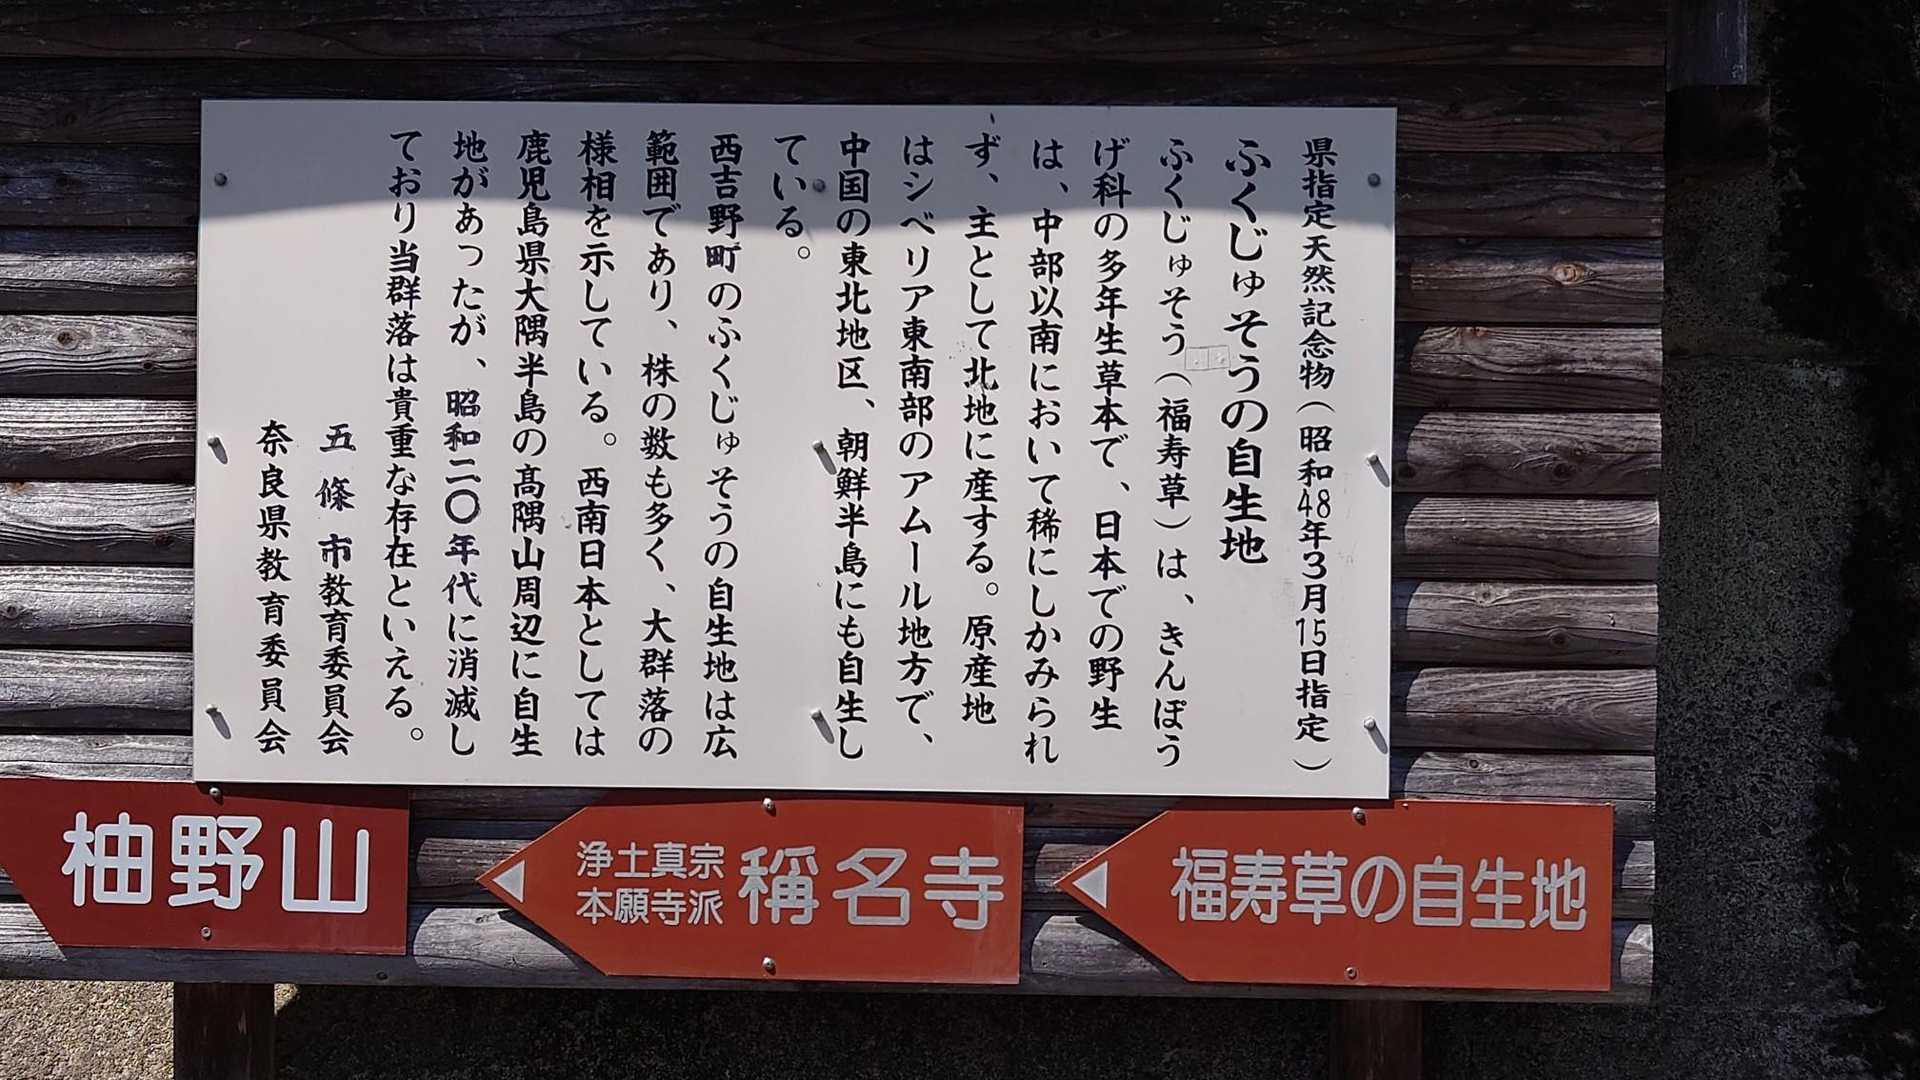 県指定天然記念物(昭和48年3月15日指定)
ふくじゅそうの自生地
ふくじゅそう(福寿草)は、きんぽう
げ科の多年生草本で、日本での野生
は、中部以南において稀にしかみられ
ず、主として北地に産する。原産地
はシベリア東南部のアムール地方で、
中国の東北地区、朝鮮半島にも自生し
ている。
西吉野町のふくじゅそうの自生地は広
範囲であり、株の数も多く、大群落の
様相を示している。西南日本としては
鹿児島県大隅半島の髙隅山周辺に自生
地があったが、昭和二〇年代に消滅し
ており当群落は貴重な存在といえる。
五條市教育委員会
奈良県教育委員会
福寿草の自生地
浄土真宗
本願寺派
稱名寺
柚野山